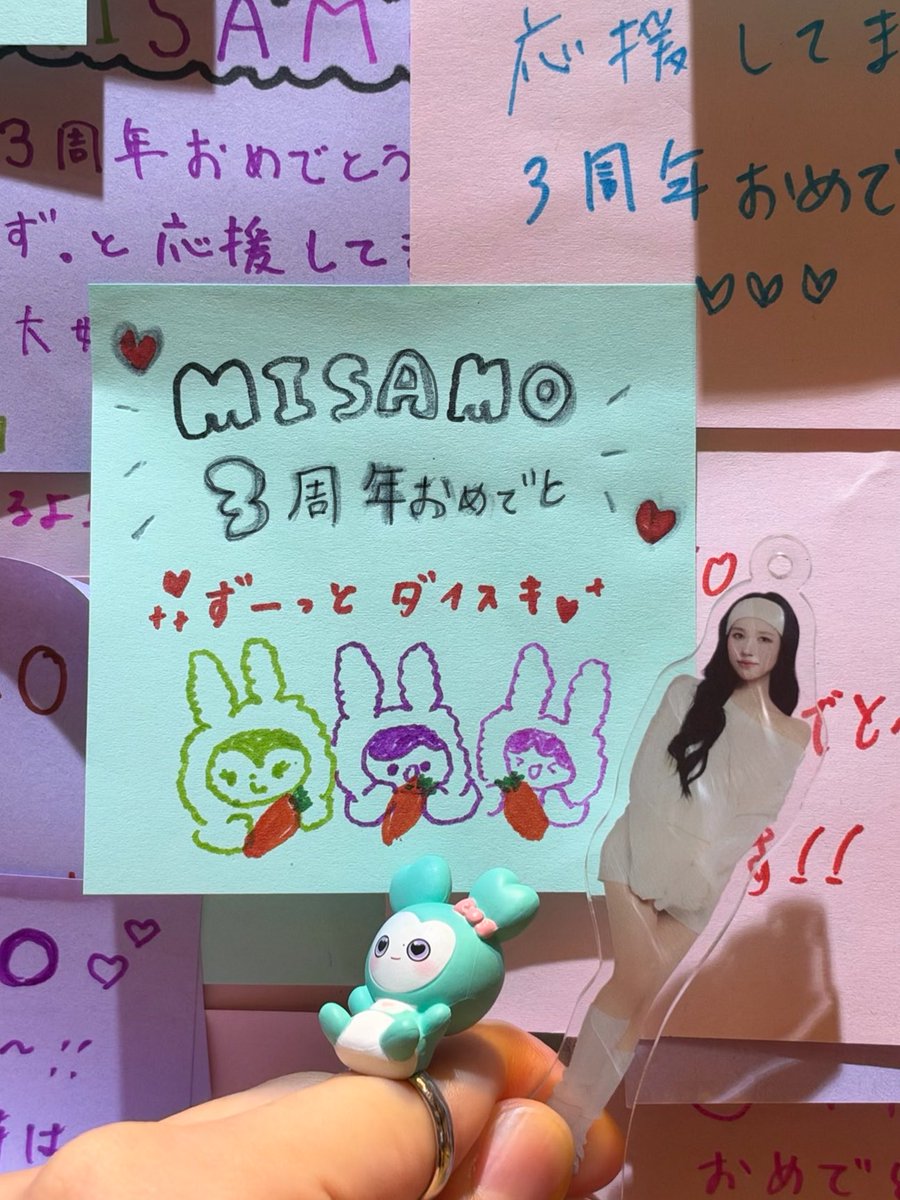 ISAM
3周年おめでとう
ずっと応援して
大
応援してま
3周年おめで
MISAMO
3周年おめでと
ずーっと ダイスキ
るよ
O
O
でと
!!
O
〜!!
は
おめで